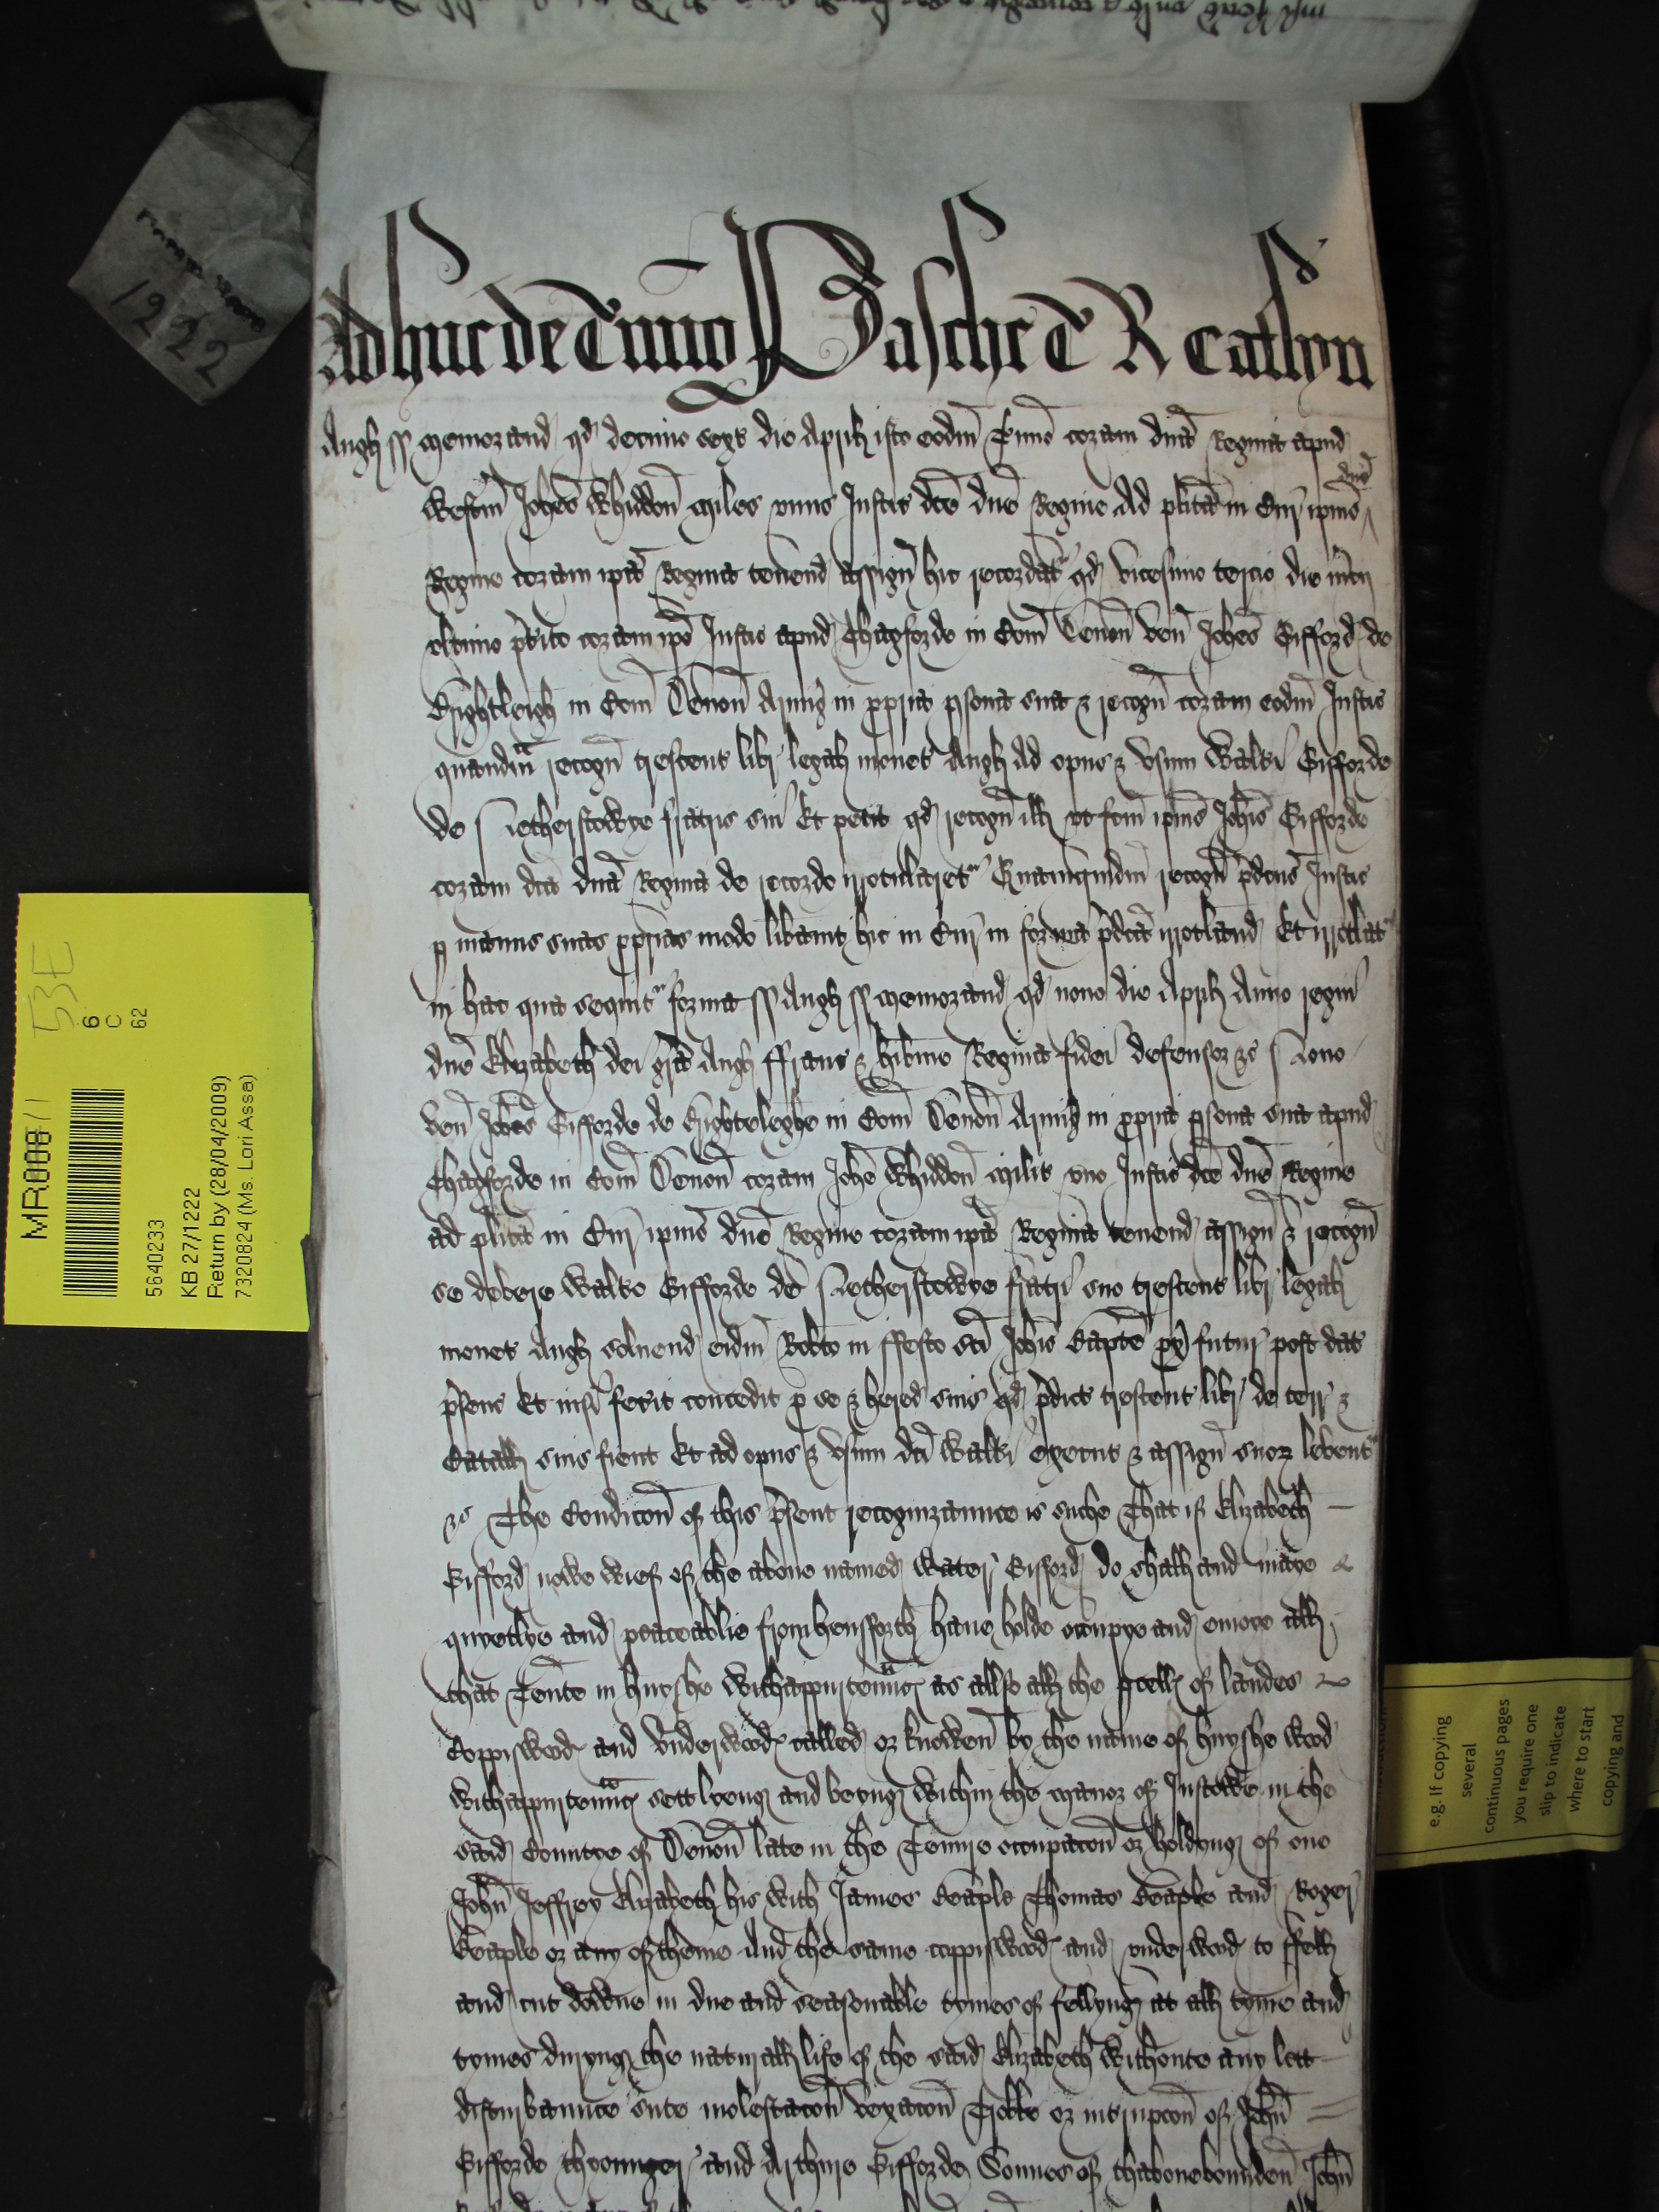 1222
Adhuc de Tmino Pasche T R Catlyn
Angl ss Memorand qd decimo sexto die Aprilis isto eodm Tmino coram dna Regina apud
Westm Johes Whiddon Miles unus Justic dce dne Regine Ad plita in Cur ipius dne
Regine coram ipa Regina tenend assign hic recordat qd vicesimo tercio die mcij
ultimo pterito coram ipo Justic apud Chagforde in Com Devon ven Johes Gifford de
Brightleigh in Com Devon Armig in ppria psona sua & recogn coram eodm Justic
quandm recogn trescent libr legal monet Angl Ad opus & usum Walti Gifforde
de Netherstowye fratris sui Et petit qd recogn ill ut fcm ipius Johis Gifforde
coram dca dna Regina de recordo irrotularetr Quamquidm recogn pdcus Justic
p manus suas pprias modo libavit hic in Cur in forma pdca irrotland Et irrotlatr
in hac que sequitr forma ss Angl ss Memorand qd nono die Aprl Anno regni
dne Elizabeth dei gra Angl ffranc & hibnie Regine fidei defensor &c Nono
ven Johes Gifforde de Brighteleghe in Com Devon Armig in ppria psona sua apud
Chagforde in Com Devon coram Johe Whiddon Milit uno Justic dce dne Regine
ad plita in Cur ipius dne Regine coram ipa Regina tenend assign & recogn
se debere Walto Gifforde de Netherstowye fratri suo trescent libr legal
monet Angl solvend eidm Robto in ffesto sci Johis Bapte px futur post dat
psens Et nisi fecit concedit p se & hered suis qd pdict trescent libr de terr &
Catall suis fient Et ad opus & usum dci Walti execut & assign suor leventr
&c The Condicon of this psent recognizaunce is suche That if Elizabeth
Gifford nowe wief of the above named Water Gifford do shall and maye
quyetlye and peaceablie from hensforth have holde occupye and enioye all
that Tente in huyshe withappurtennc as allso all the pcell of landes
Coppiswood and Underwood called or knowen by the name of huyshe wood
withappurtennc sett lyeng and beyng within the Manor of Instowe in the
said Countye of Devon late in the Tenure occupacon or holdyng of one
John Jeffrey Elizabeth his wife James Beaple Thomas Beaple and Roger
Beaple or any of theme And the same coppiswood and underwood to ffell
and cut downe in due and seasonable tymes of fellyng at all tyme and
tymes duryng the naturall life of the said Elizabeth withoute any lett
disturbaunce sute molestacon vexacon Troble or interupcon of John
Gifforde theounger and Arthure Gifforde Sonnes of thabovebounden John
53E
6
C
62
MR008/1
5640233
KB 27/1222
Return by (28/04/2009)
7320824 (Ms. Lori Assa)
e.g. If copying
several
continuous pages
you require one
slip to indicate
where to start
copying and